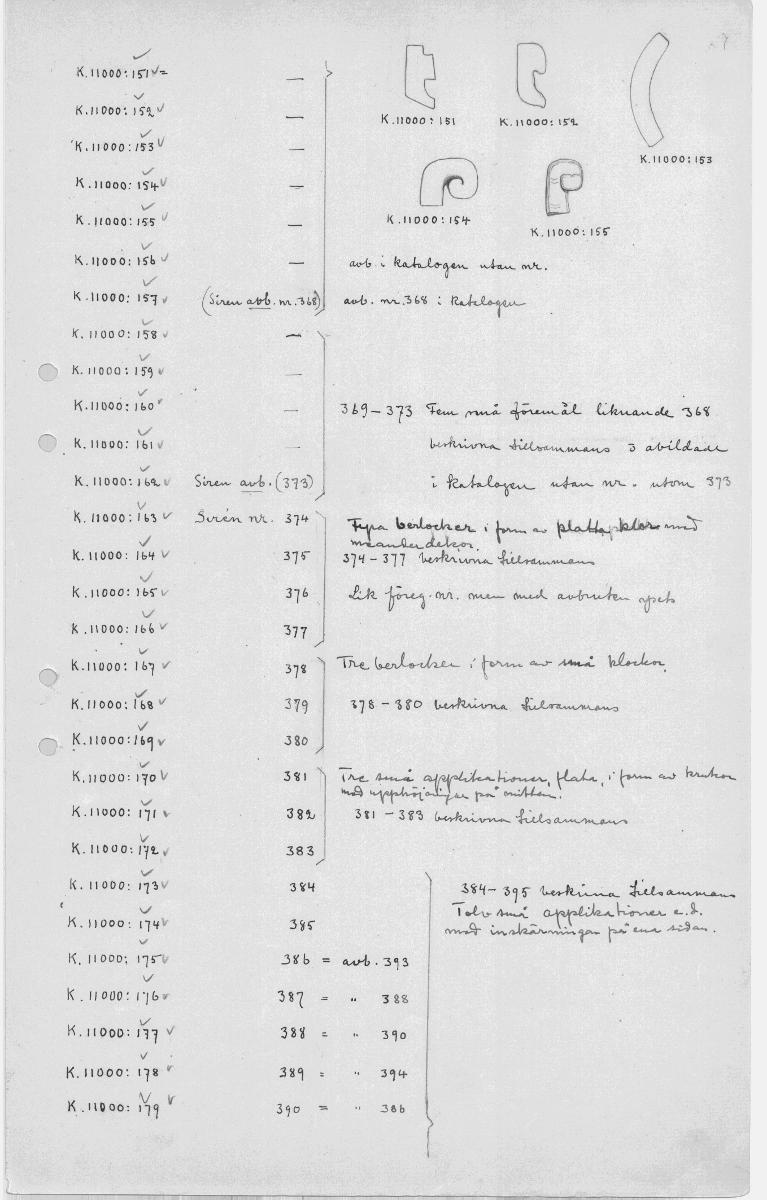 7
K.11000:151 —
K.11000:152 —
K.11000:153 —
K.11000:154 —
K.11000:155 —
K.11000:151
K.11000:152
K.11000:153
K.11000:154
K.11000:155
K.11000:156 — avb i katalogen utan nr.
K.11000:157 (Siren avb. nr. 368) avb. nr. 368 i katalogen
K.11000:158 —
K.11000:159 —
K.11000:160 — 369–373 Fem små föremål liknande 368
K.11000:161 — beskrivna tillsammans 3 avbildade
K.11000:162 Siren avb. (373) i katalogen utan nr. utom 373
K.11000:163 Sirén nr. 374 Fyra berlocker i form av platta, klor med
meanderdekor.
K.11000:164 375 374–377 beskrivna tillsammans
K.11000:165 376 Lik föreg. nr. men med avbruten spets
K.11000:166 377
K.11000:167 378 Tre berlocker i form av små klockor.
K.11000:168 379 378–380 beskrivna tillsammans
K.11000:169 380
K.11000:170 381 Tre små applikationer, flata, i form av krukor
med upphöjningar på mitten.
K.11000:171 382 381–383 beskrivna tillsammans
K.11000:172 383
K.11000:173 384 384–395 beskrivna tillsammans
K.11000:174 385 Tolv små applikationer e.d.
med inskärningar på ena sidan.
K.11000:175 386 = avb. 393
K.11000:176 387 = " 388
K.11000:177 388 = " 390
K.11000:178 389 = " 394
K.11000:179 390 = " 386